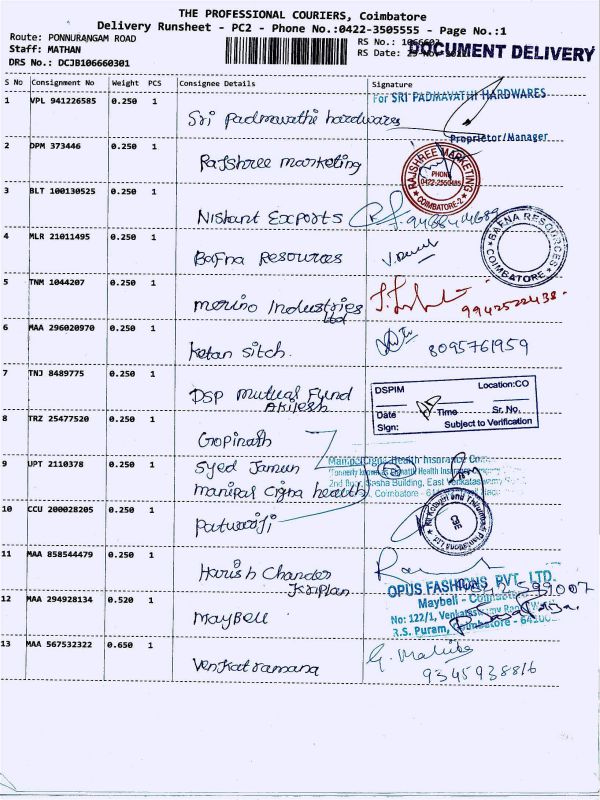 THE PROFESSIONAL COURIERS, Coimbatore
Delivery Runsheet - PC2 - Phone No.:0422-3505555 - Page No.:1
Route: PONNURANGAM ROAD
Staff: MATHAN
DRS No.: DCJB106660301
RS No.:
RS Date:
DOCUMENT DELIVERY
S No Consignment No Weight PCS Consignee Details Signature
1 VPL 941226585 0.250 1 Sri Padmavathi hardwares
For SRI PADMAVATHI HARDWARES
Proprietor/Manager
2 DPM 373446 0.250 1 Rajshree marketing
RAJSHREE MARKETING
PHONE
0422-2550485
COIMBATORE-2
3 BLT 100130525 0.250 1 Nishant Exports
4 MLR 21011495 0.250 1 Bafna Resources
BAFNA RESOURCES
COIMBATORE
5 TNM 1044207 0.250 1 Merino Industries
Ltd
9942522438
6 MAA 296020970 0.250 1 Ketan sitch.
8095761959
7 TNJ 8489775 0.250 1 DSP mutual Fund
Akilesh
DSPIM Location:CO
Date Time Sr. No.
Sign: Subject to Verification
8 TRZ 25477520 0.250 1 Gopinath
9 UPT 2110378 0.250 1 Syed Jamun
manipal Cigna health
ManipalCigna Health Insurance Co
Health Insurance
Building, East Venkatasw
Coimbatore - 6
10 CCU 200028205 0.250 1 Patwariji
11 MAA 858544479 0.250 1 Harish Chander
12 MAA 294928134 0.520 1 MayBell
OPUS FASHIONS PVT. LTD.
Maybell - Coimbatore
No: 122/1, Venkataswamy Road
R.S. Puram, Coimbatore - 641002
13 MAA 567532322 0.650 1 Venkatramana
9345938816